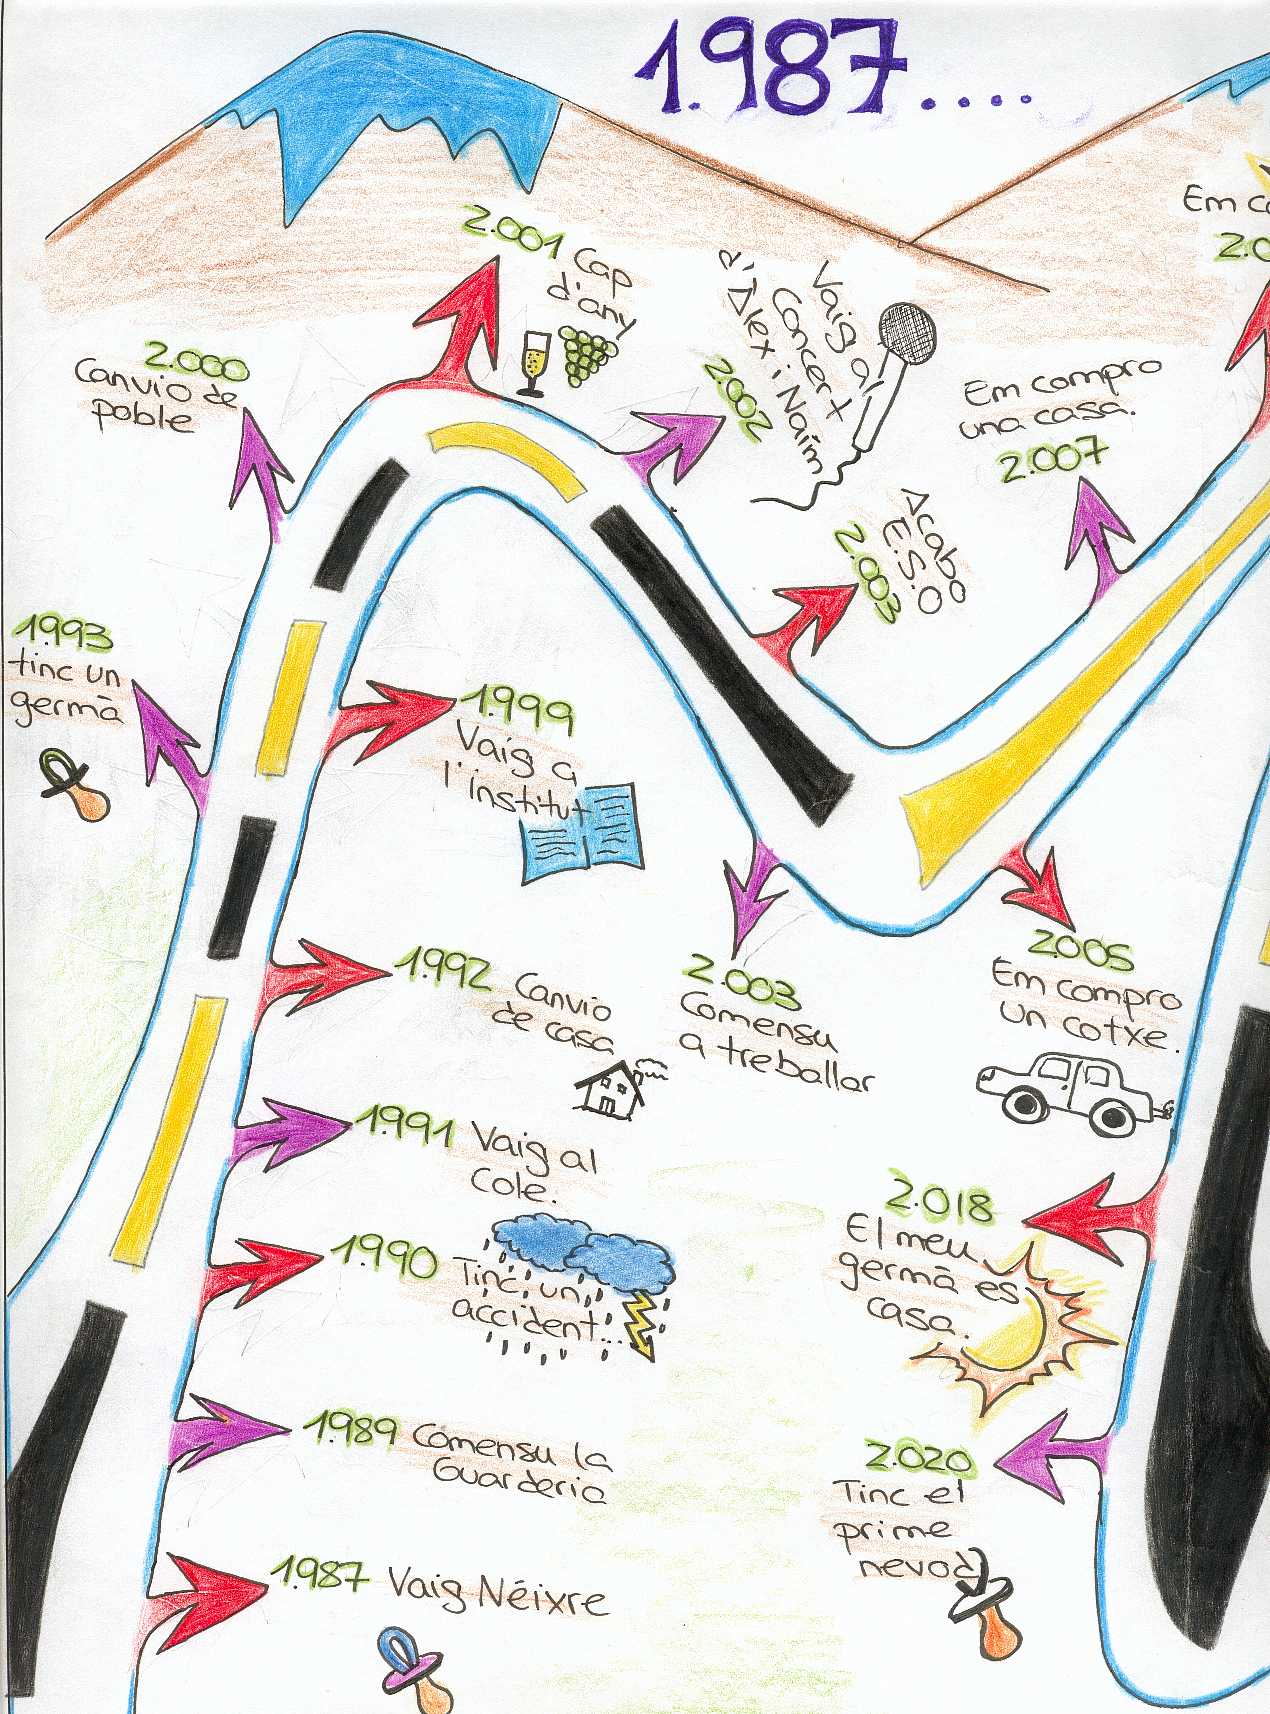 1.987....
2.001 Cap
d'any
2.000
Canvio de
poble
Vaig al
Concert
d'Àlex i Naïm
2.002
Em compro
una casa.
2.007
Em co
2.0
Acabo
E.S.O
2.003
1.993
tinc un
germà
1.999
Vaig a
l'institut
1.992 Canvio
de casa
2.003
Comensu
a treballar
2.005
Em compro
un cotxe.
1.991 Vaig al
Cole.
1.990 Tinc un
accident...
2.018
El meu
germà es
casa.
1.989 Comensu la
Guarderia
2.020
Tinc el
prime
nevod
1.987 Vaig Néixre